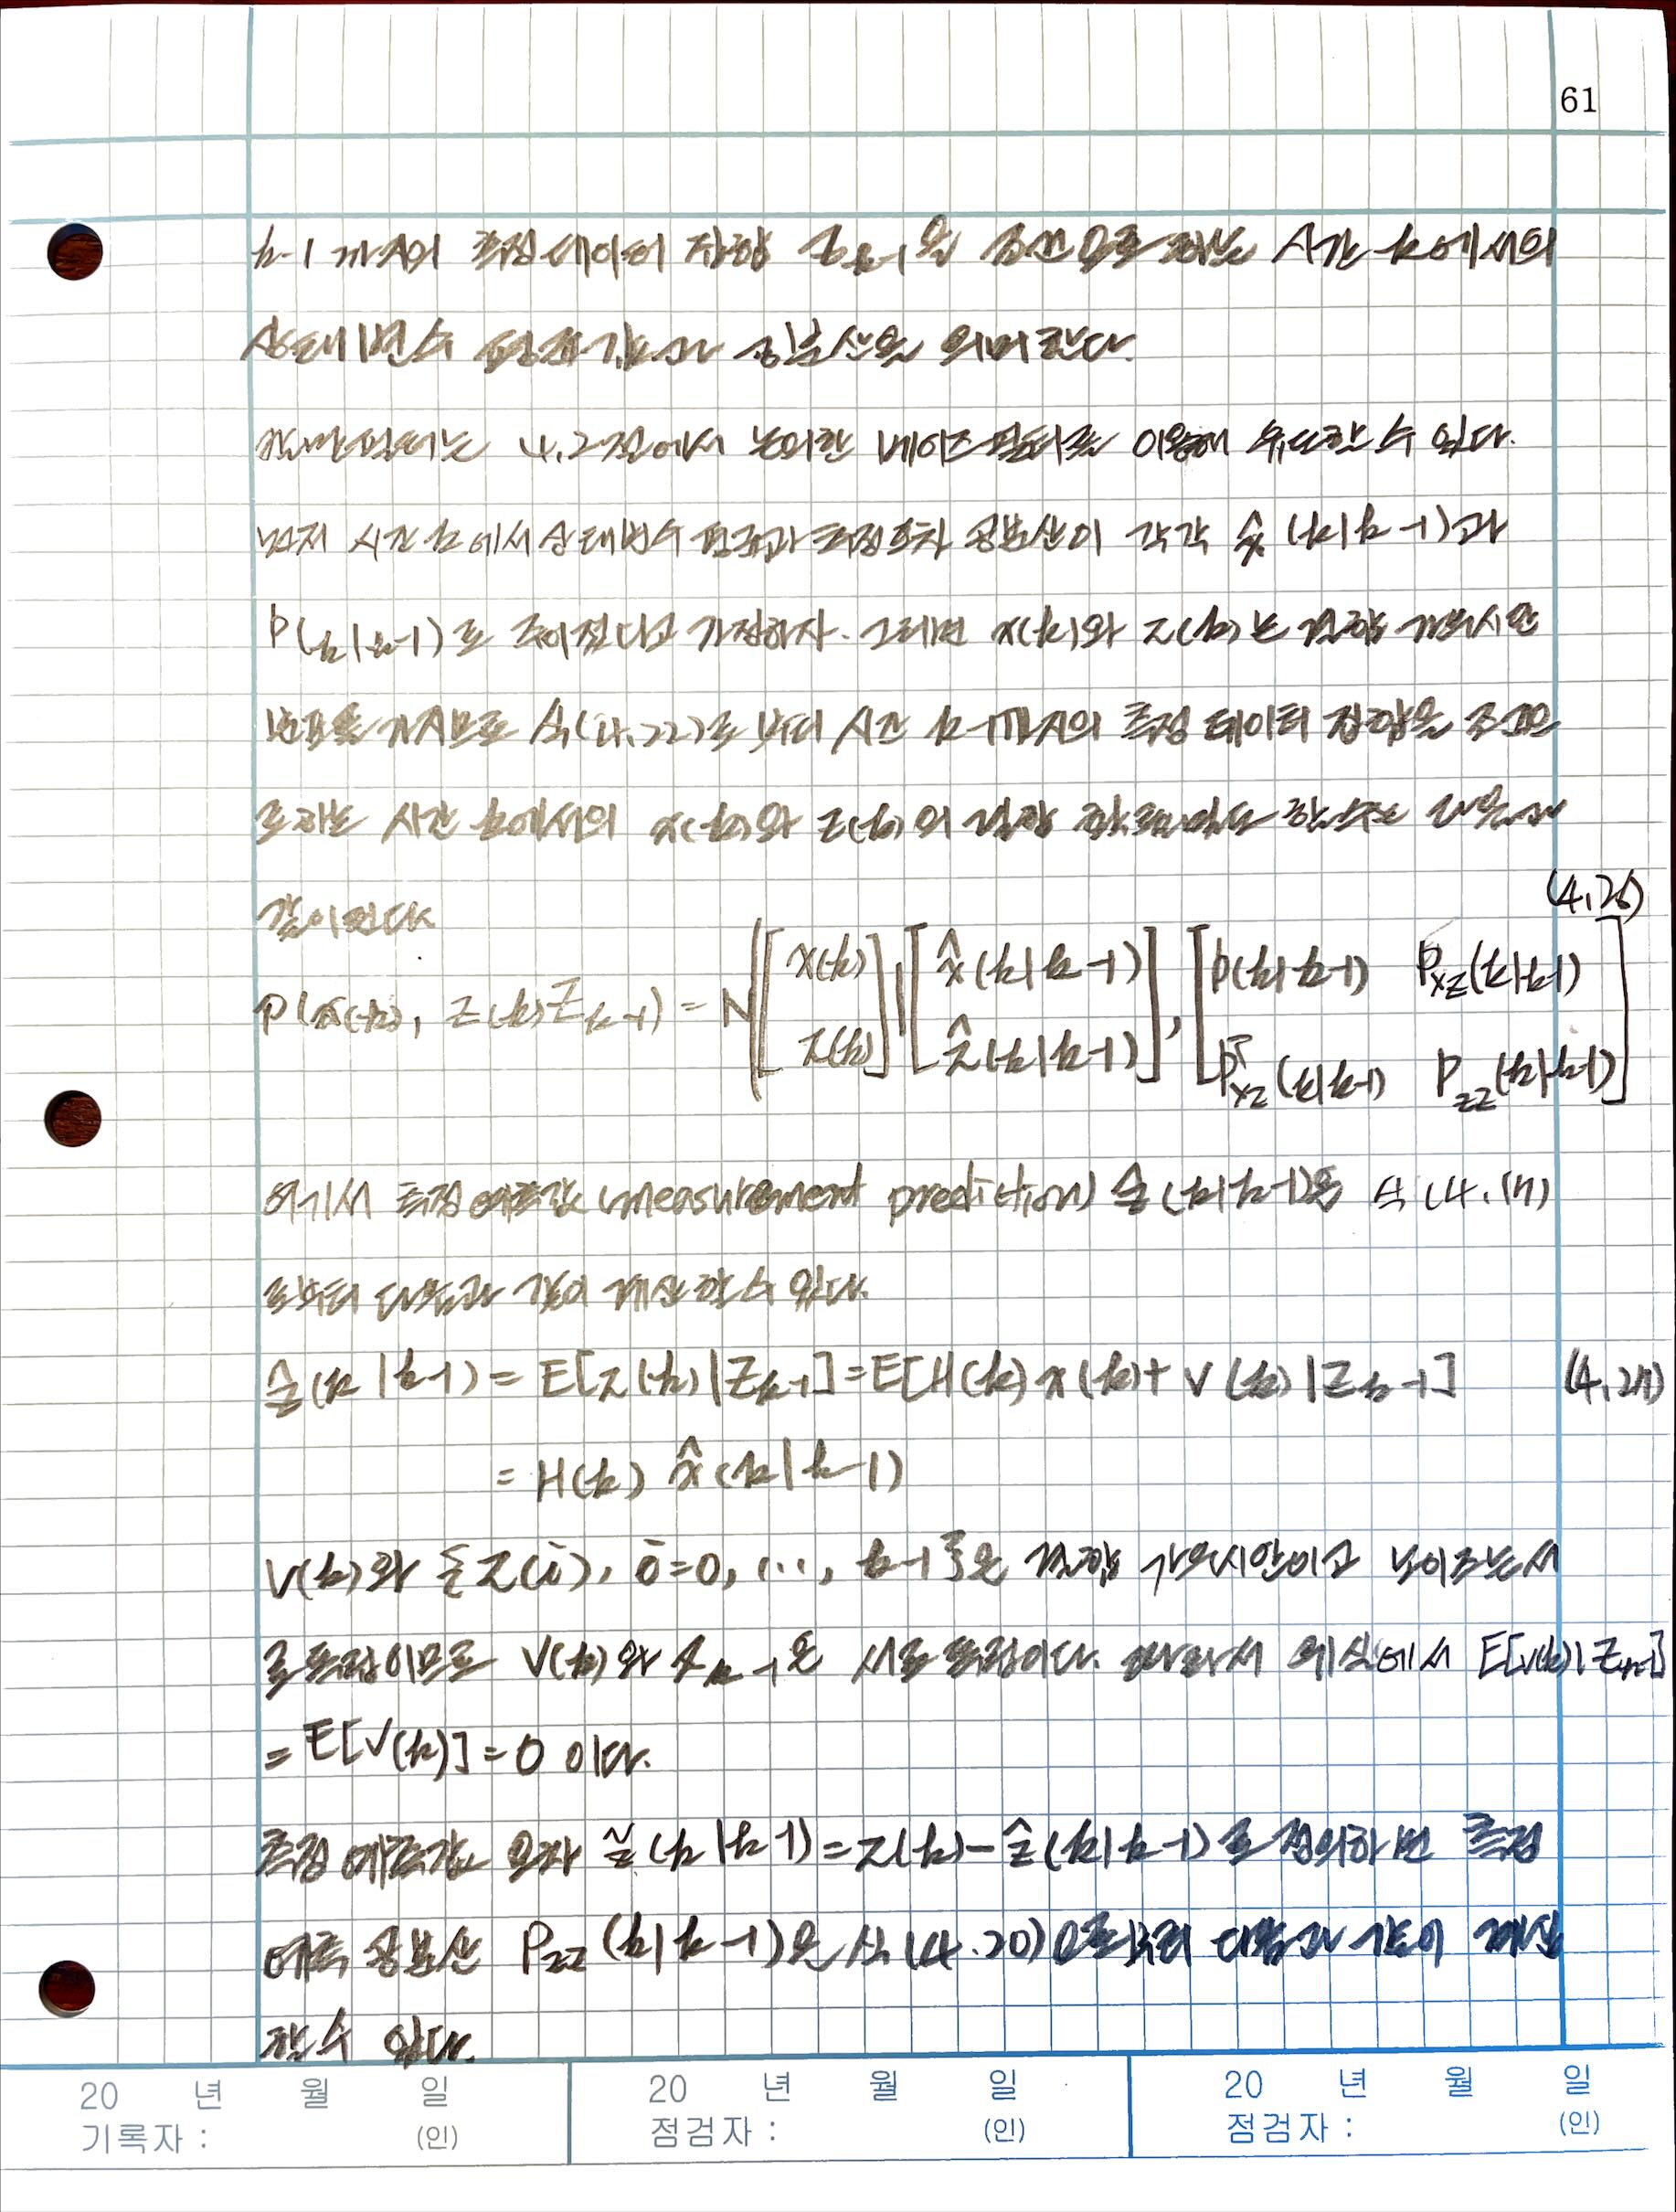 61
k-1 까지의 측정 데이터 집합 Z_{k-1}을 조건으로 하는 시간 k에서의
상태변수 평균값과 공분산을 의미한다.
칼만필터는 4.2절에서 논의한 베이즈 필터를 이용해 유도할 수 있다.
먼저 시간 k에서 상태변수 평균과 추정오차 공분산이 각각 x̂(k|k-1)과
P(k|k-1)로 주어졌다고 가정하자. 그러면 x(k)와 z(k)는 결합 가우시안
분포를 가지므로 식(4.22)로부터 시간 k-1까지의 측정 데이터 집합을 조건으
로 하는 시간 k에서의 x(k)와 z(k)의 결합 확률밀도 함수는 다음과
같이 된다.
(4.26)
p(x(k), z(k) Z_{k-1}) = N([x(k) z(k)] | [x̂(k|k-1) ẑ(k|k-1)], [P(k|k-1) P_{xz}(k|k-1) P^T_{xz}(k|k-1) P_{zz}(k|k-1)]
여기서 측정 예측값 (measurement prediction) ẑ(k|k-1)은 식 (4.17)
로부터 다음과 같이 계산할 수 있다.
ẑ(k|k-1) = E[z(k)|Z_{k-1}] = E[H(k)x(k)+v(k)|Z_{k-1}] (4.27)
= H(k) x̂(k|k-1)
v(k)와 {z(i), i=0, ..., k-1}은 결합 가우시안이고 노이즈는 서
로 독립이므로 v(k)와 Z_{k-1}은 서로 독립이다. 따라서 위 식에서 E[v(k)|Z_{k-1}]
= E[v(k)] = 0 이다.
측정 예측값 오차 z̃(k|k-1) = z(k) - ẑ(k|k-1)로 정의하면 측정
예측 공분산 P_{zz}(k|k-1)은 식(4.20)으로부터 다음과 같이 계산
할 수 있다.
20 년 월 일 20 년 월 일 20 년 월 일
기록자 : (인) 점검자 : (인) 점검자 : (인)